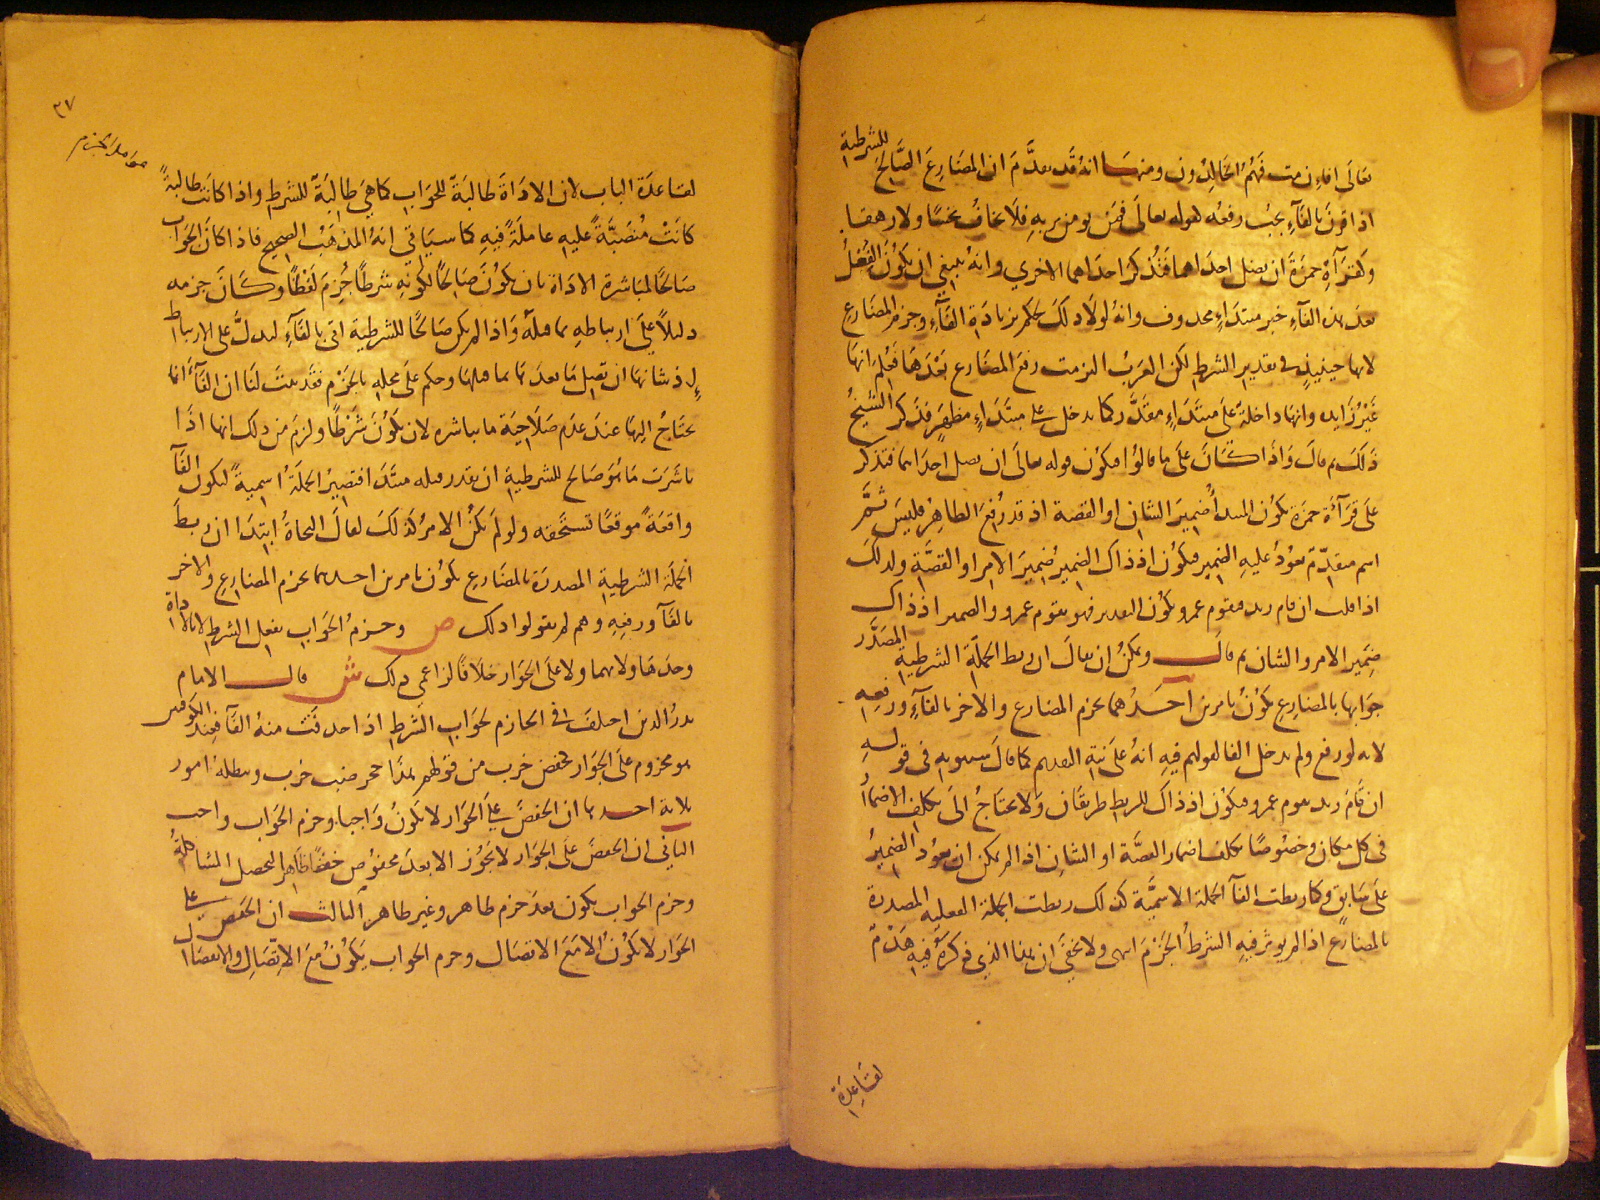 تعالى افان مت فهم الخالدون ومنها انه قد تقدم ان المضارع الصالح للشرطية
اذا قرن بالفاء يجب رفعه لقوله تعالى فمن يومن بربه فلا يخاف بخسا ولا رهقا
وكقراءة حمزة ان تضل احداهما فتذكر احداهما الاخرى وانه ينبغي ان يكون الفعل
بعد هذه الفاء خبر مبتداء محذوف وانه لولا ذلك لحكم بزيادة الفاء وجزم المضارع
لانها حينئذ في تقدير الشرط لكن العرب التزمت رفع المضارع بعدها فعلم انها
غير زايده وانها داخلة على مبتداء مقدر كما تدخل على مبتداء مظهر فذكر الشيخ
ذلك ثم قال واذا كان على ما قالوا فيكون قوله تعالى ان تضل احداهما فتذكر
على قراءة حمزة يكون المبتدأ ضمير الشان او القصة اذ قد رفع الظاهر فليس ثم
اسم متقدم يعود عليه الضمير فيكون اذ ذاك الضمير ضمير الامر او القصة ولذلك
اذا قلت ان قام زيد فيقوم عمرو يكون التقدير فهو يقوم عمرو والضمير اذ ذاك
ضمير الامر والشان ثم قال ويمكن ان يقال ان ربط الجملة الشرطية المصدر
جوابها بالمضارع يكون بامرين احدهما بجزم المضارع والاخر بالفاء ورفعه
لانه لو رفع ولم تدخل الفا لقولهم فيه انه على نية التقديم كما قال سيبويه في قوله
ان قام زيد يقوم عمرو فيكون اذ ذاك للربط طريقان ولا يحتاج الى تكلف الاضمار
في كل مكان وخصوصا تكلف اضمار القصة او الشان اذا لم يمكن ان يعود الضمير
على سابق وكما ربطت الفا الجملة الاسمية كذلك ربطت الجملة الفعليه المصدرة
بالمضارع اذا لم يوثر فيه الشرط الجزم انتهى ولا يخفى ان هذا الذي ذكره فيه هدم
لقاعدة
٣٧
عوامل الجزم
لقاعدة الباب لان الاداة طالبة للجواب كما هي طالبة للشرط واذا كانت طالبة
كانت منصبة عليه عاملة فيه كما سياتي انه المذهب الصحيح فاذا كان الجواب
صالحا لمباشرة الاداة بان يكون صالحا لكونه شرطا جزم لفظا وكان جزمه
دليلا على ارتباطه بما قبله واذا لم يكن صالحا للشرطية اتى بالفاء ليدل على الارتباط
اذ شانها ان تصل ما بعدها بما قبلها وحكم على محله بالجزم فقد ثبت لنا ان الفاء انما
يحتاج اليها عند عدم صلاحية ما يباشره لان يكون شرطا ولزم من ذلك انها اذا
باشرت ما هو صالح للشرطية ان يقدر قبله مبتدا فتصير الجملة اسمية لتكون الفآ
واقعة موقعا تستحقه ولو لم يكن الامر كذلك لقال النحاة ابتدا ان ربط
الجملة الشرطية المصدرة بالمضارع يكون بامرين احدهما بجزم المضارع والاخر
بالفآ ورفعه وهم لم يقولوا ذلك ص وجزم الجواب بفعل الشرط لا بالاداة
وحدها ولا بهما ولا على الجوار خلافا لزاعمي ذلك ش قال الامام
بدر الدين اختلف في الجازم لجواب الشرط اذا حذفت منه الفا فعند الكوفيين
هو مجزوم على الجوار كخفض خرب من قولهم هذا حجر ضب خرب ويبطله امور
ثلاثة احدها ان الخفض على الجوار لا يكون واجبا وجزم الجواب واجب
الثاني ان الخفض على الجوار لا يجوز الا بعد مخفوض خفضا ظاهرا لتحصل المشاكلة
وجزم الجواب يكون بعد جزم ظاهر وغير ظاهر الثالث ان الخفض على
الجوار لا يكون الا مع الاتصال وجزم الجواب يكون مع الاتصال والانفصال